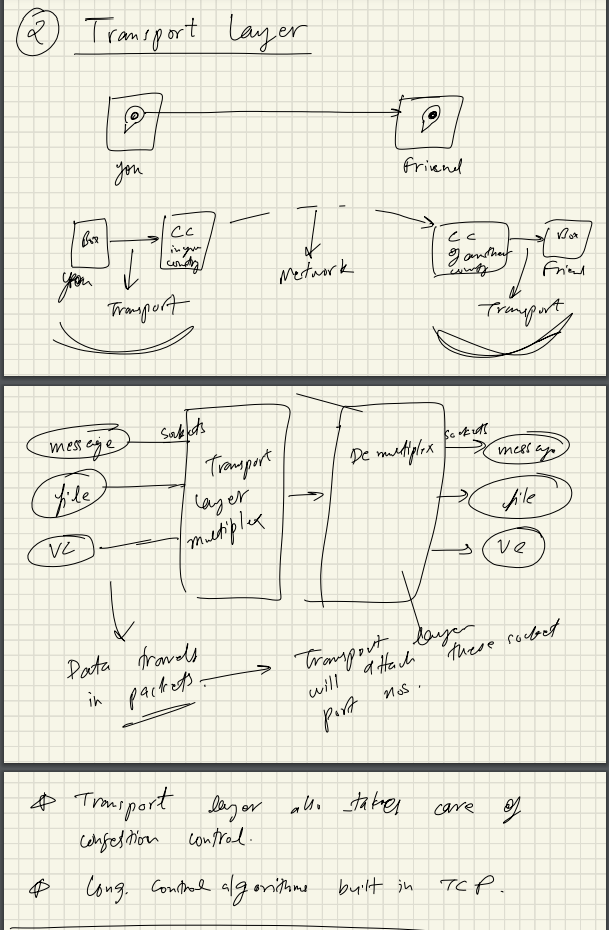 2 Transport Layer
you
Friend
Box
CC
in your
country
CC
of another
country
Box
you
Network
Friend
Transport
Transport
message
sockets
Transport
Layer
multiplex
De multiplex
sockets
message
file
file
VC
VC
Data travels
in packets.
Transport layer
will attach these socket
port nos.
Transport layer also takes care of
congestion control.
Cong. control algorithms built in TCP.